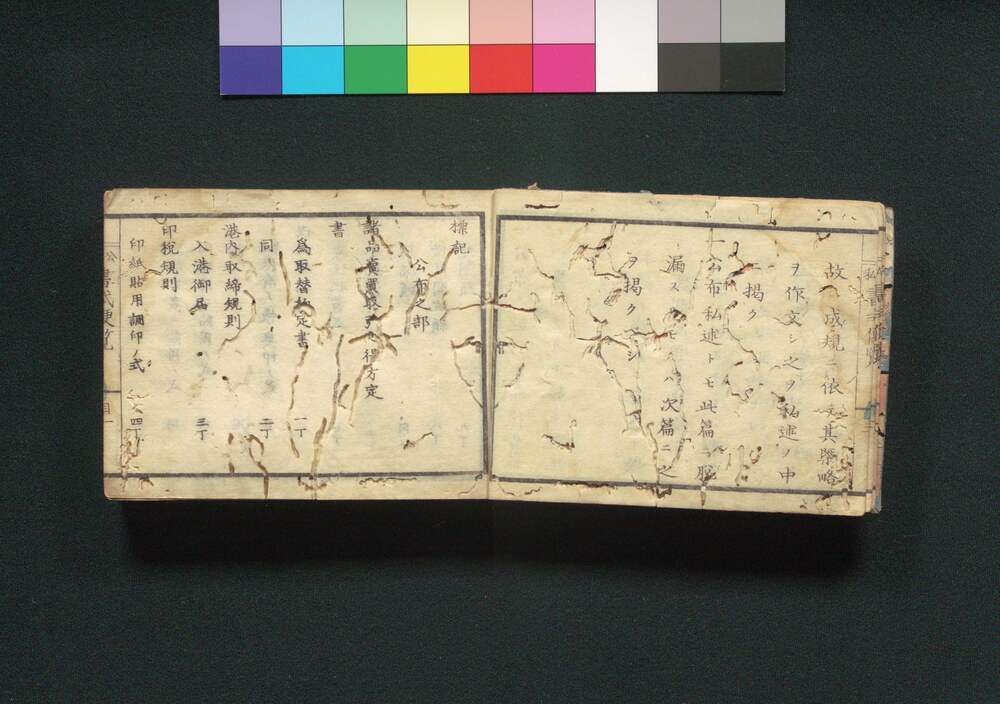 故ニ成規ニ依テ其擧略
ヲ作文シ之ヲ私述ノ中
ニ掲ク
一公布私述トモ此篇ニ脱
漏スルモノハ次篇ニ之
ヲ掲クヘシ
標記
公布之部
諸品賣買取引心得方定
書
爲取替約定書 一丁
同 二丁
港内取締規則
入港御届 三丁
印税規則
印紙貼用調印ノ式 四丁
書式便覧